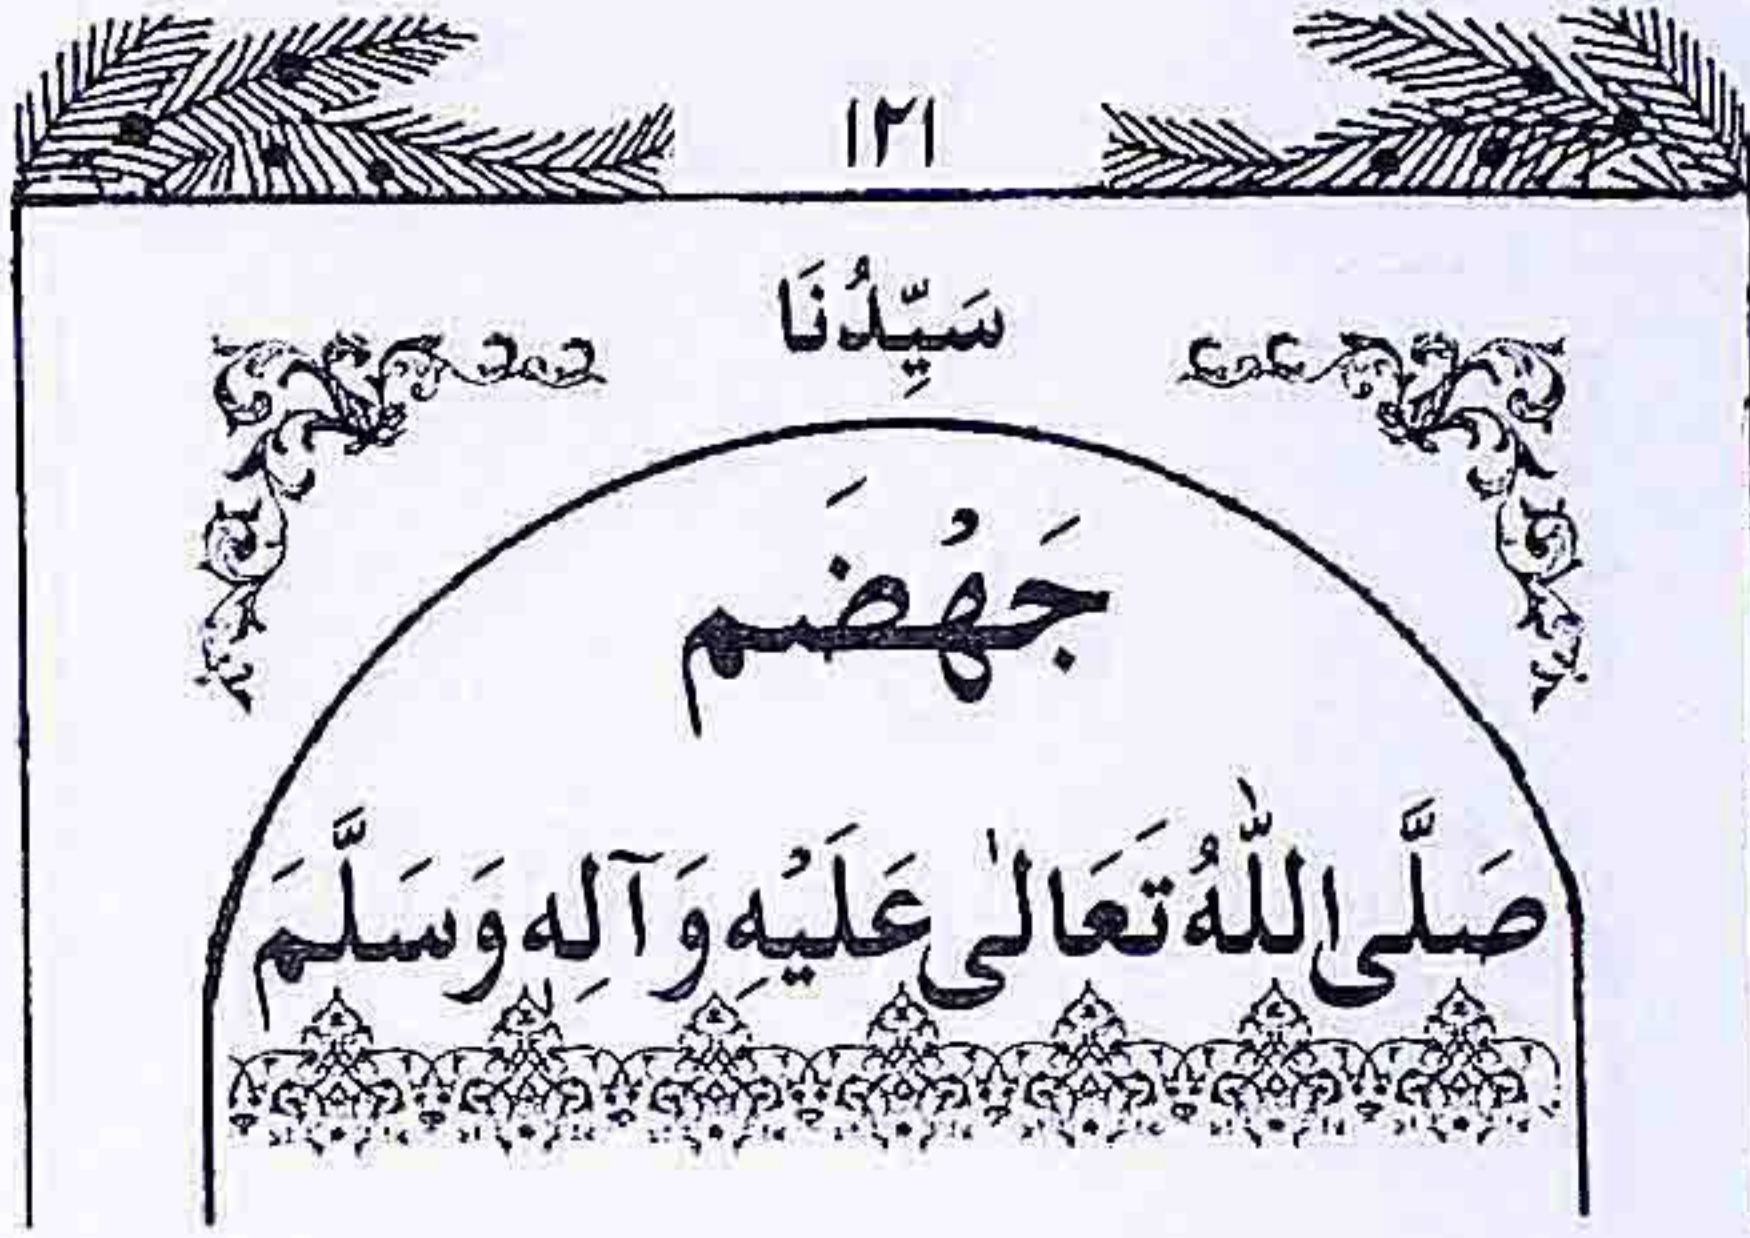 ۱۲۱
سَيِّدُنَا
جَهُضَم
صَلَّى اللّٰهُ تَعَالٰى عَلَيْهِ وَآلِهٖ وَسَلَّمَ